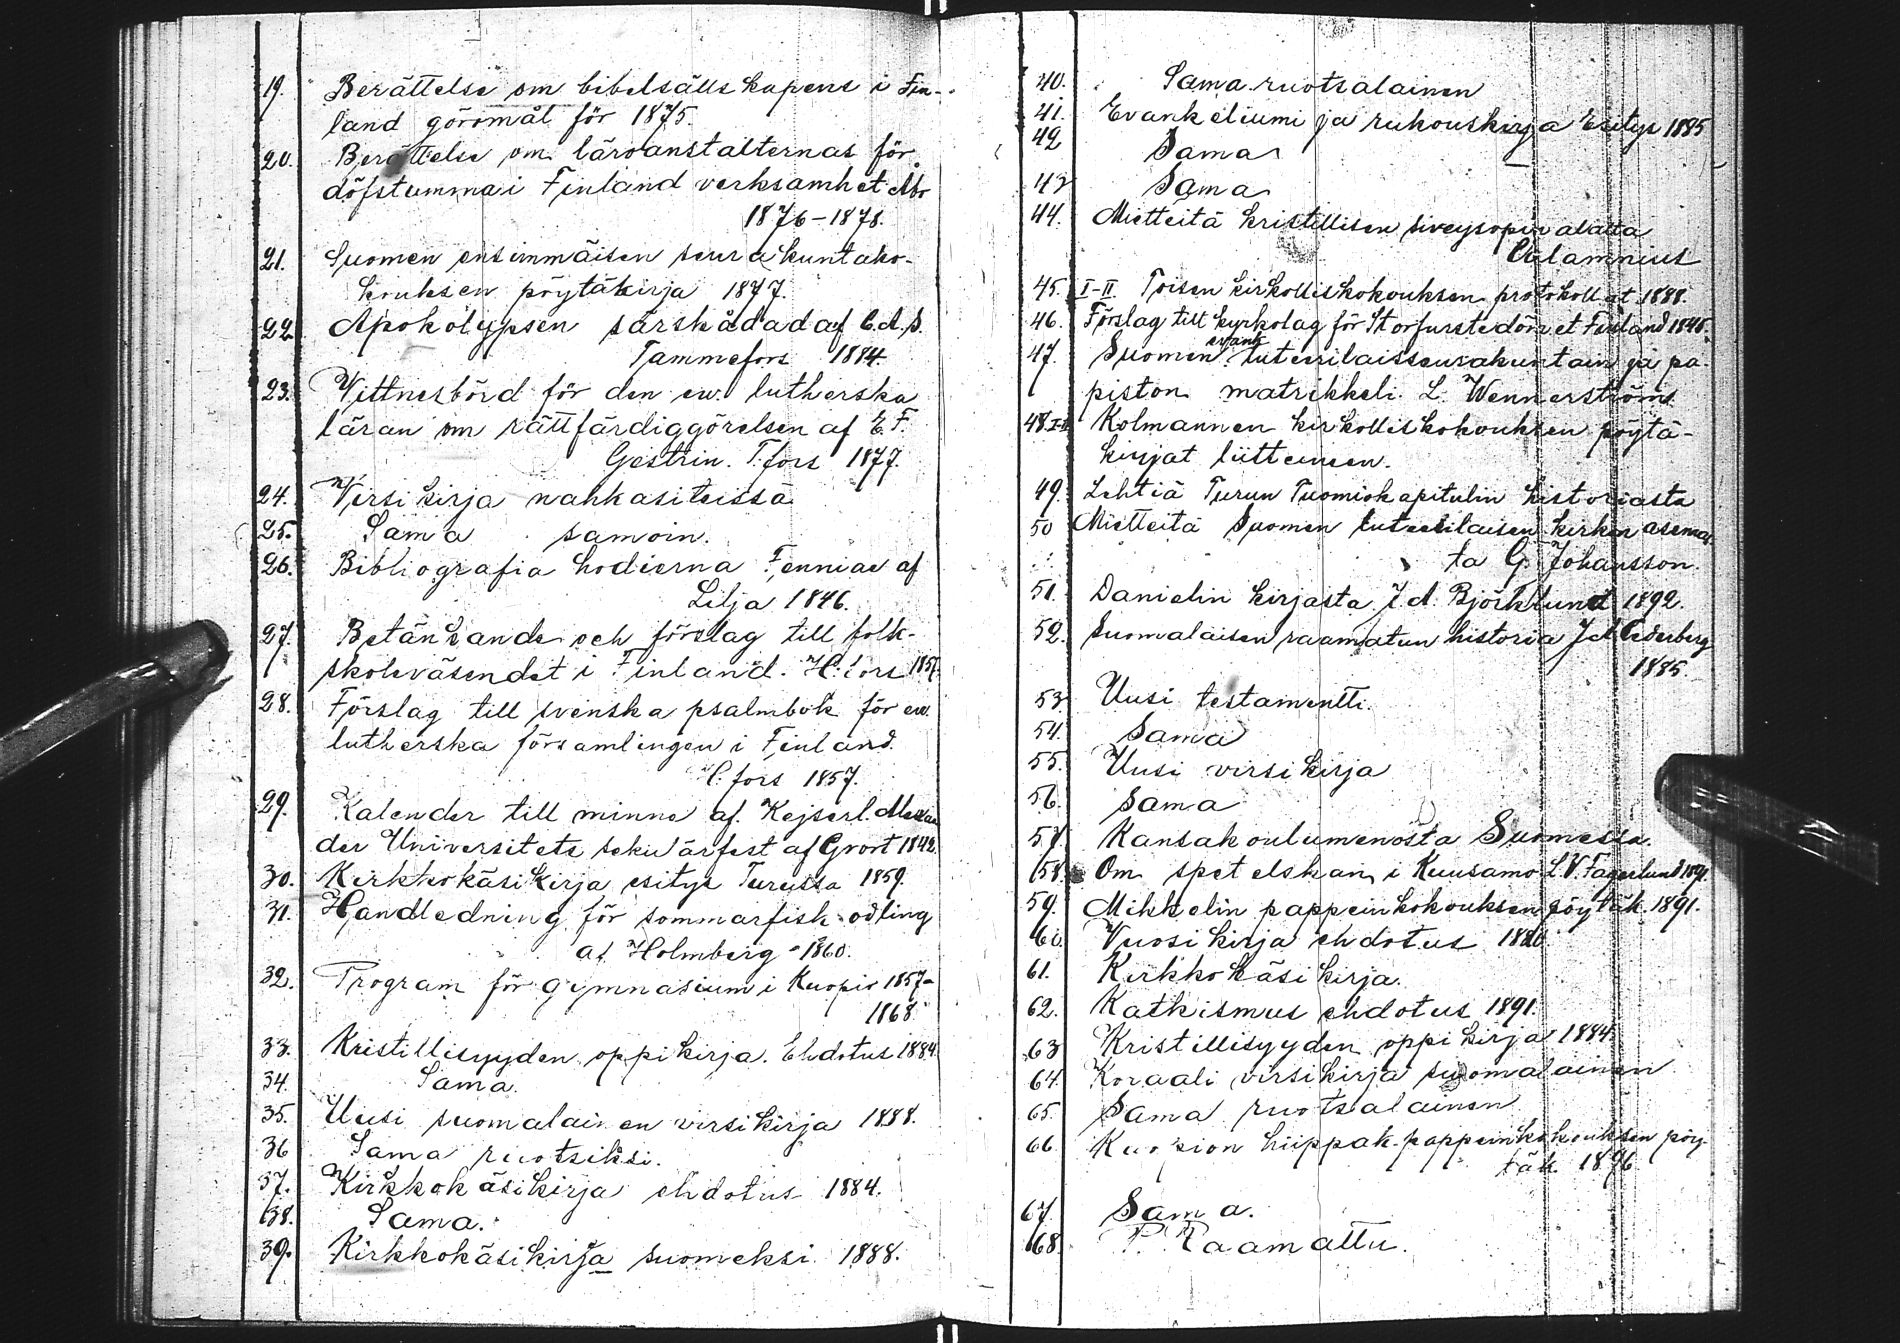 19. Berättelse om bibelsällskapens i Fin-
land göromål för 1875.
20. Berättelse om läroanstalternas för
döfstumma i Finland verksamhet Abo
1876-1878.
21. Suomen ensimmäisen seurakuntako-
kouksen pöytäkirja 1877.
22. Apokolypsen särskådad af C.A.S.
Tammefors 1884.
23. Vittnesbörd för den ew. lutherska
läran om rättfärdiggörelsen af E. F.
Gestrin. T:fors 1877.
24. Virsikirja nahkasiteissä
25. Sama samoin.
26. Bibliografia hodierna Fenniae af
Lilja 1846.
27. Betänkande och förslag till folk-
skoleväsendet i Finland. H:fors 1857.
28. Förslag till svenska psalmbok för ew.
lutherska församlingen i Finland.
H:fors 1857.
29. Kalender till minne af Kejserl. Alexan
der Universitets sekulärfest af Grort 1842.
30. Kirkkokäsikirja esitys Turussa 1859.
31. Handledning för sommarfisk odling
af Holmberg 1860.
32. Program för gymnasium i Kuopio 1857-
1868
33. Kristillisyyden oppikirja. Ehdotus 1884.
34. Sama.
35. Uusi suomalainen virsikirja 1888.
36 Sama ruotsiksi.
37. Kirkkokäsikirja ehdotus 1884.
38. Sama.
39. Kirkkokäsikirja suomeksi 1888.
40. Sama ruotsalainen
41. Evankeliumi ja rukouskirja Esitys 1885
42 Sama
43 Sama
44. Mietteitä kristillisen siveysopin alalta
45. I-II Toisen kirkolliskokouksen protokollat 1888.
46. Förslag till kyrkolag för Storfurstedömet Finland 1845.
47. Suomen evank. luterilaisseurakuntain ja pa-
piston matrikkeli L. Wennerströms
48. I-II Kolmannen kirkolliskokouksen pöytä-
kirjat liitteineen.
49. Lehtiä Turun Tuomiokapitulin historiasta
50 Mietteitä Suomen luterilaisen kirkon asemas-
ta G. Johansson.
51. Danielin kirjasta J. A. Björklund 1892.
52. Suomalaisen raamatun historia J A Cederberg
1885.
53 Uusi testamentti.
54. Sama
55. Uusi virsikirja
56. Sama
57. Kansakoulumenosta Suomessa.
58. Om spetelskan i Kuusamo L.V. Fagerlund 1891.
59. Mikkelin pappeinkokouksen pöytäk. 1891.
60. Vuosikirja ehdotus 1880
61. Kirkkokäsikirja.
62. Katkismus ehdotus 1891.
63 Kristillisyyden oppikirja 1884.
64. Koraali virsikirja suomalainen
65. Sama ruotsalainen
66. Kuopion hiippak. pappeinkokouksen pöy-
täk. 1896
67. Sama.
68. P. Raamattu.